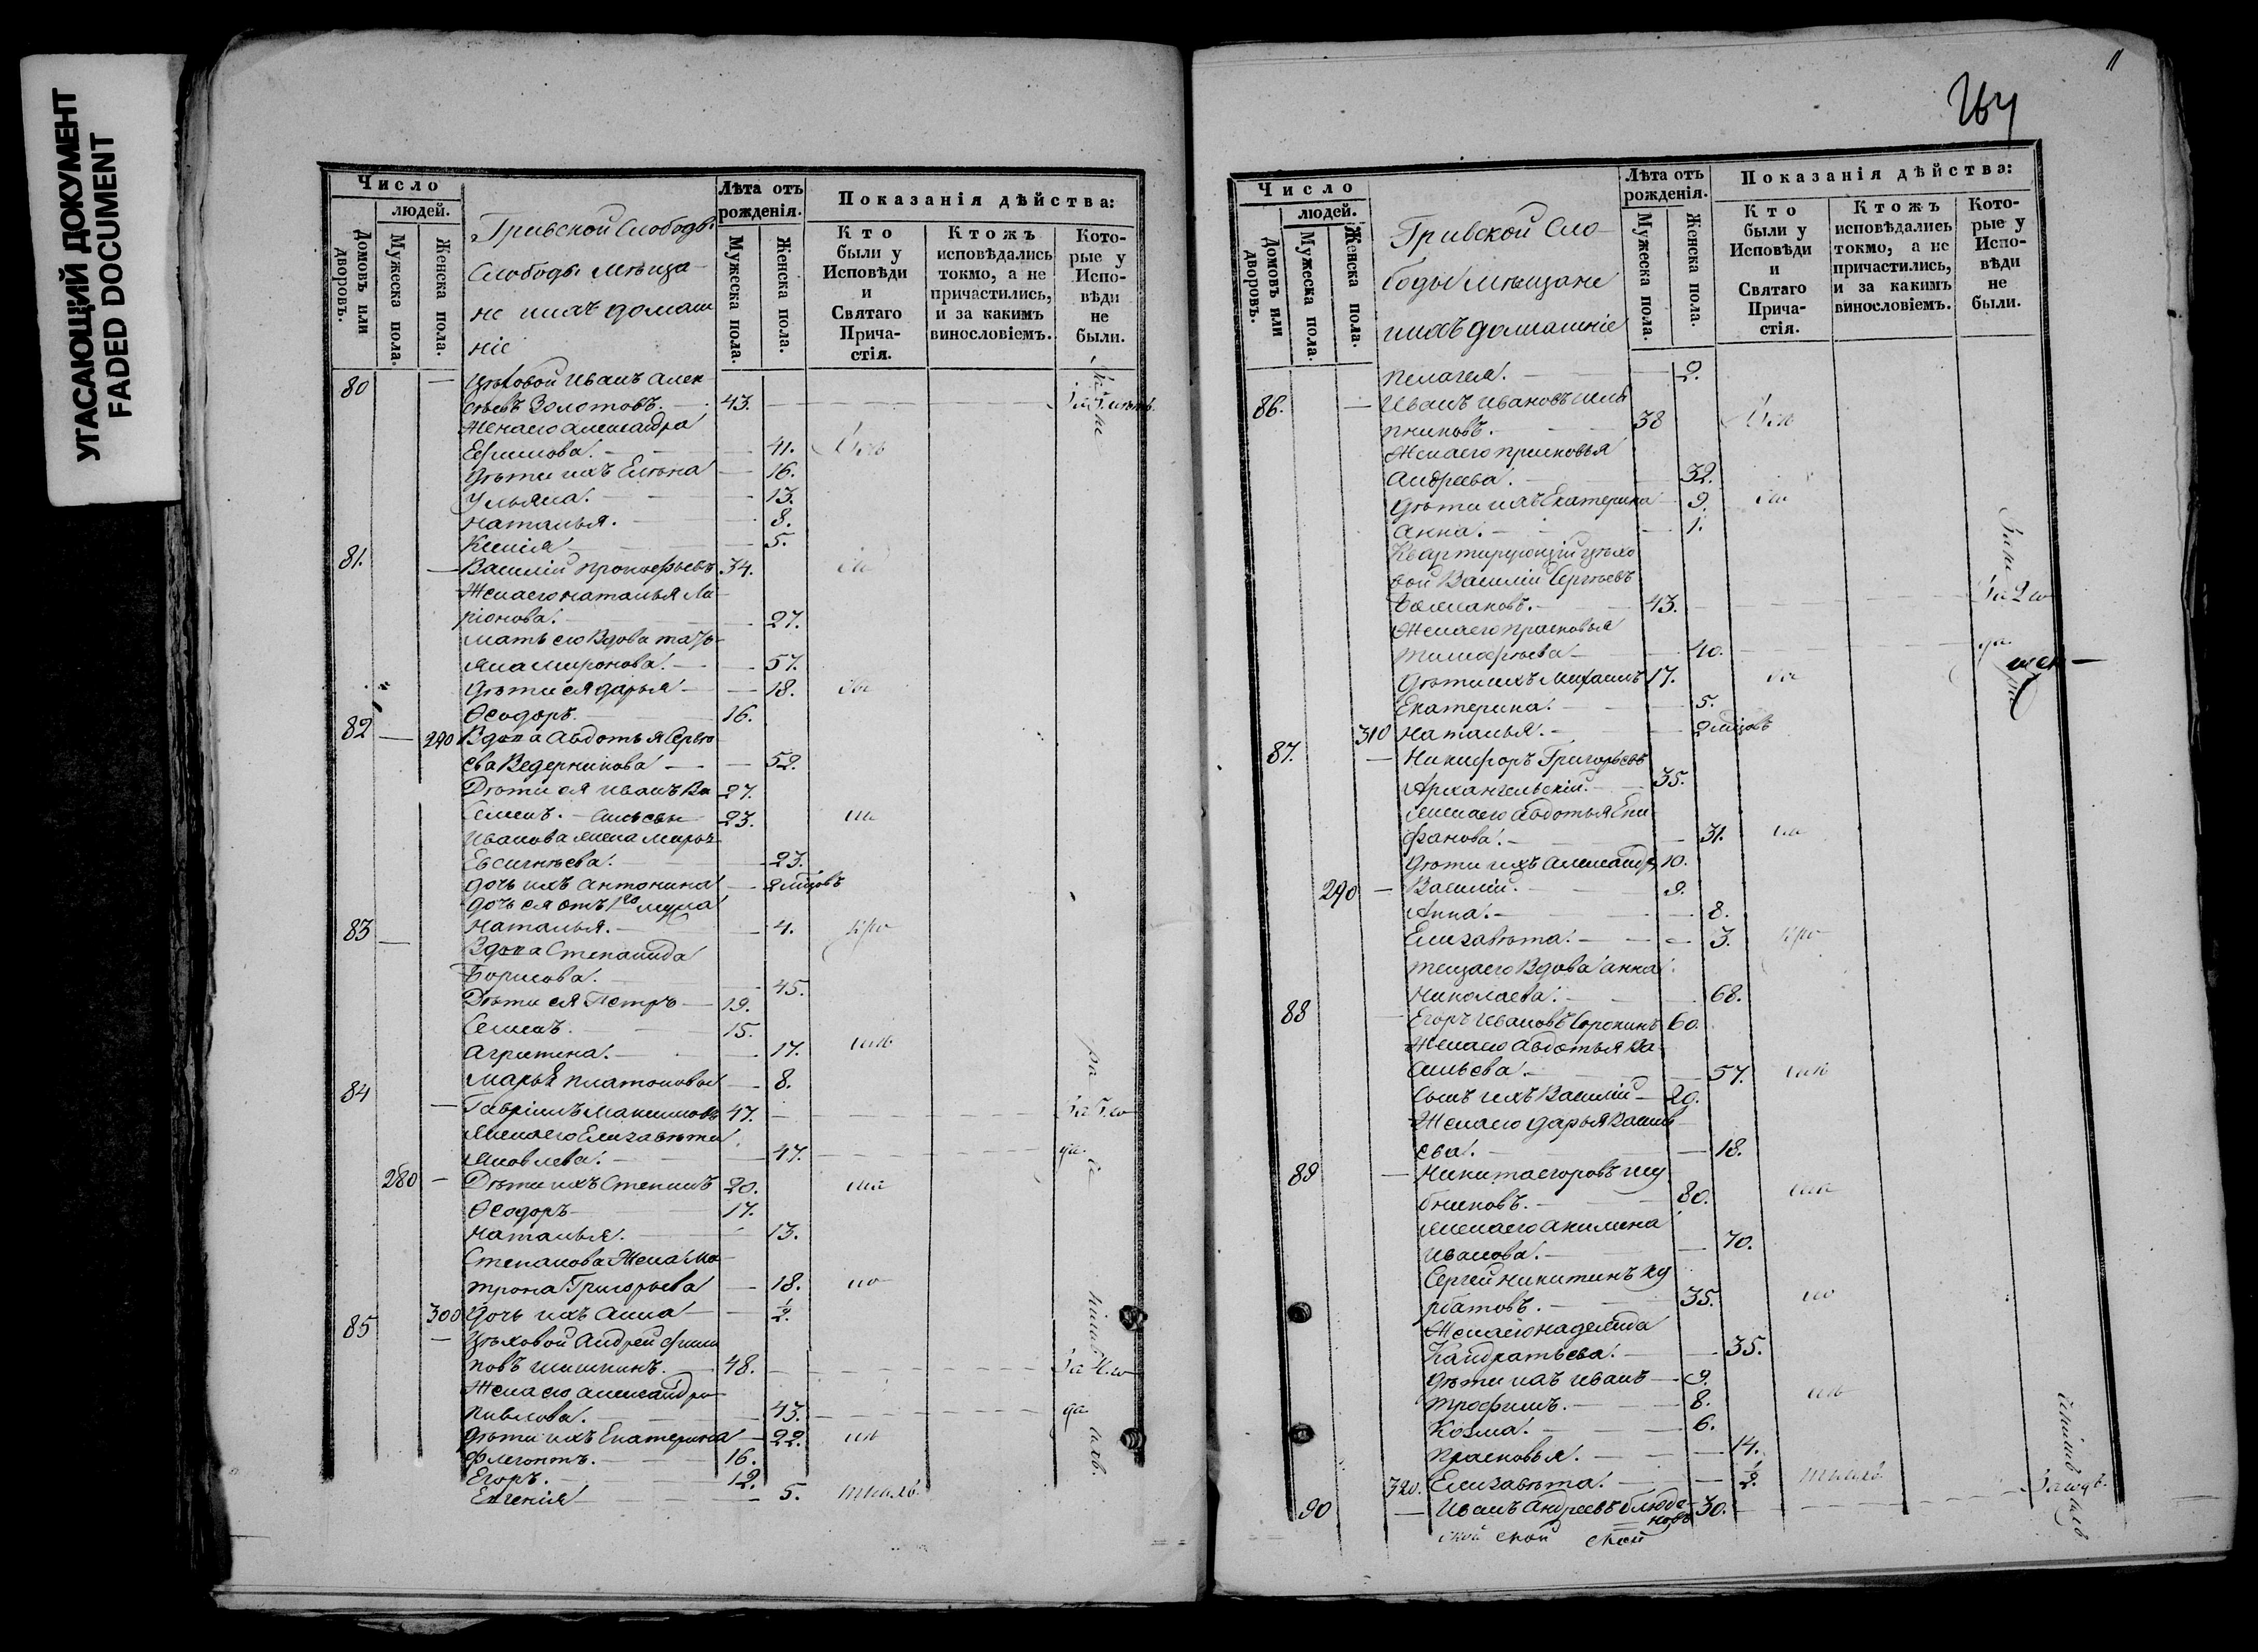 УГАСАЮЩИЙ ДОКУМЕНТ
FADED DOCUMENT
Число
людей.
Домовъ или дворовъ.
Мужеска пола.
Женска пола.
Гривской Слободы
Слободы мѣща-
не и ихъ домаш
ніе
Лѣта отъ рожденія.
Мужеска пола.
Женска пола.
Показанія дѣйства:
Кто были у Исповѣди и Святаго Прича-стія.
Ктожъ исповѣдались токмо, а не причастились, и за какимъ винословіемъ.
Кото-рые у Испо-вѣди не были.
80 — Цѣховой Иванъ Алек
сѣевъ Золотовъ. 43.
Жена его Александра
Ефимова. 41.
Дѣти ихъ Елена 16.
Ульяна. 13.
Наталья. 8.
Ксенія 5.
81. — Василій Прокофьевъ 34.
Жена его Наталья Ла
ріонова. 27.
Мать его Вдова Татья
яна Миронова. 57.
Дѣти ея Дарья 18.
Ѳеодоръ. 16.
82 — 290 Вдова Авдотья Сергѣ
ева Ведерникова 52.
Дѣти ея Иванъ Ва 27.
Семенъ. 23.
Иванова жена Марья
Евсигнѣева. 23.
Дочь ихъ Антонина 2 мцовъ
Дочь ея отъ 1го мужа
83 — Наталья. 4.
Вдова Степанида
Борисова. 45.
Дѣти ея Петръ 19.
Семенъ. 15.
Агрипена. 17.
Марья Платоновы 8.
84 — Гавріилъ Максимовъ 47. за 5. го
Жена его Елизавѣта
Яковлева. 47. да.
280 — Дѣти ихъ Степанъ 20.
Ѳеодоръ 17.
Наталья. 13.
Степанова Жена Ма
трона Григорьева 18.
300 Дочь ихъ Анна 1/2.
85 — Цѣховой Андрей Филип
повъ Шишкинъ. 48. за 4. го
Жена его Александра
Павлова. 43. да.
Дѣти ихъ Екатерина 22.
Флегонтъ. 16.
Егоръ. 12.
Евгенія 5.
11
264
Число
людей.
Домовъ или дворовъ.
Мужеска пола.
Женска пола.
Гривской Сло-
боды мѣщане
и ихъ домашніе
Лѣта отъ рожденія.
Мужеска пола.
Женска пола.
Показанія дѣйства:
Кто были у Исповѣди и Святаго Прича-стія.
Ктожъ исповѣдались токмо, а не причастились, и за какимъ винословіемъ.
Кото-рые у Испо-вѣди не были.
Пелагея. 2.
86. — Иванъ Ивановъ Шля
пниковъ. 38
Жена его Прасковья
Андреева. 32.
Дѣти ихъ Екатерина 9.
Анна. 1.
Квартирующій цѣхо
вой Василій Сергѣевъ
43. за 2 го
Жена его Прасковья
Тимофѣева 40. да.
Дѣти ихъ Михаилъ 17.
Екатерина. 5.
310 Наталья. 2 мцовъ
87. — Никифоръ Григорьевъ
Архангельскій. 35.
Жена его Авдотья Епи
фанова. 31.
Дѣти ихъ Александръ 10.
290 — Василій. 9.
Анна. 8.
Елизавѣта. 3.
Теща его Вдова Анна
Николаева. 68.
88 — Егоръ Ивановъ Сорокинъ 60.
Жена его Авдотья Ва
сильева. 57.
Сынъ ихъ Василій 20.
Жена его Дарья Василь
ева. 18.
89 — Никита Егоровъ Шу
бниковъ. 80.
Жена его Акилина
Иванова. 70.
Сергей Никитинъ Ку
рбатовъ. 35.
Жена его Надежда
Кандратьева. 35.
Дѣти ихъ Иванъ 9.
Трофимъ. 8.
Козма. 6.
Прасковья. 14.
320. Елизавѣта. 1/2.
90 — Иванъ Андреевъ Блюде
новъ 30.
ской ской ской